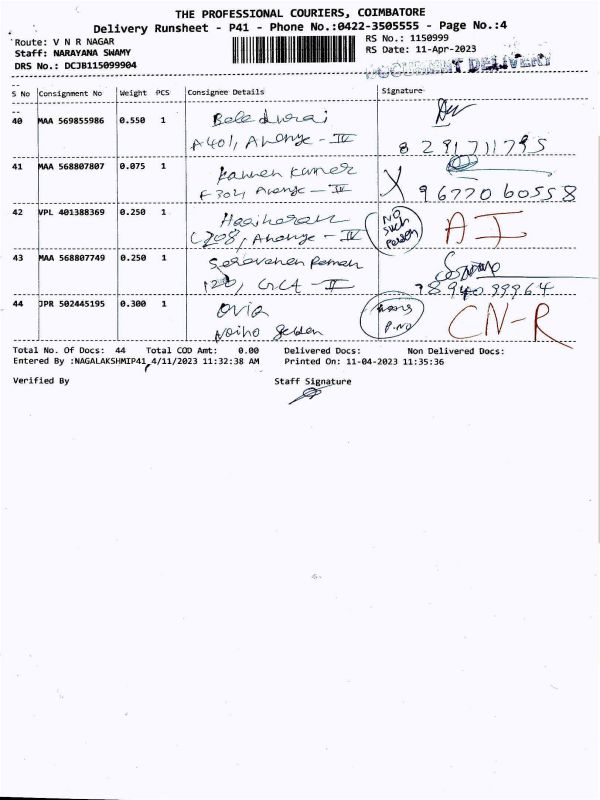 THE PROFESSIONAL COURIERS, COIMBATORE
Delivery Runsheet - P41 - Phone No.:0422-3505555 - Page No.:4
Route: V N R NAGAR
RS No.: 1150999
Staff: NARAYANA SWAMY
RS Date: 11-Apr-2023
DRS No.: DCJB115099904
DOCUMENT DELIVERY
S No Consignment No Weight PCS Consignee Details Signature
40 MAA 569855986 0.550 1 Baladurai
A401, - IV
8291711795
41 MAA 568807807 0.075 1 Kannan Kumar
F304, - IV
X 9677060558
42 VPL 401388369 0.250 1 Hariharan
C208, - IV
No such person
AI
43 MAA 568807749 0.250 1 Saravanan Raman
GCA - II
7894099964
44 JPR 502445195 0.300 1 Ovia
Garden
P.NO
CN-R
Total No. Of Docs: 44 Total COD Amt: 0.00 Delivered Docs: Non Delivered Docs:
Entered By :NAGALAKSHMIP41 4/11/2023 11:32:38 AM Printed On: 11-04-2023 11:35:36
Verified By Staff Signature